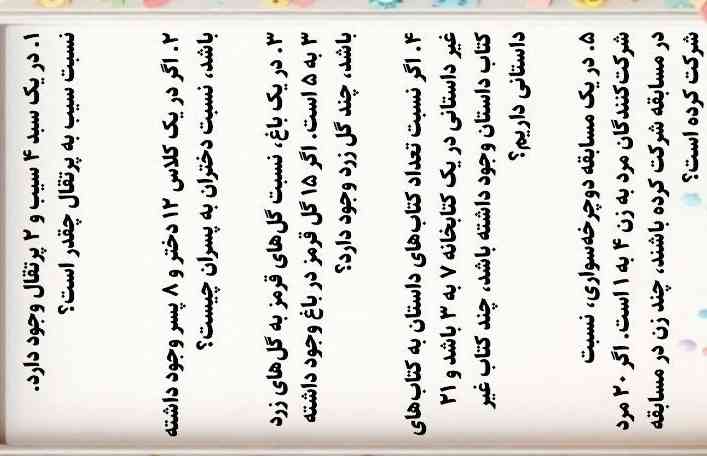 ۱. در یک سبد ۴ سیب و ۲ پرتقال وجود دارد.
نسبت سیب به پرتقال چقدر است؟
۲. اگر در یک کلاس ۱۲ دختر و ۸ پسر وجود داشته
باشد، نسبت دختران به پسران چیست؟
۳. در یک باغ، نسبت گل‌های قرمز به گل‌های زرد
۳ به ۵ است. اگر ۱۵ گل قرمز در باغ وجود داشته
باشد، چند گل زرد وجود دارد؟
۴. اگر نسبت تعداد کتاب‌های داستان به کتاب‌های
غیر داستانی در یک کتابخانه ۷ به ۳ باشد و ۲۱
کتاب داستان وجود داشته باشد، چند کتاب غیر
داستانی داریم؟
۵. در یک مسابقه دوچرخه‌سواری، نسبت
شرکت‌کنندگان مرد به زن ۴ به ۱ است. اگر ۲۰ مرد
در مسابقه شرکت کرده باشند، چند زن در مسابقه
شرکت کرده است؟